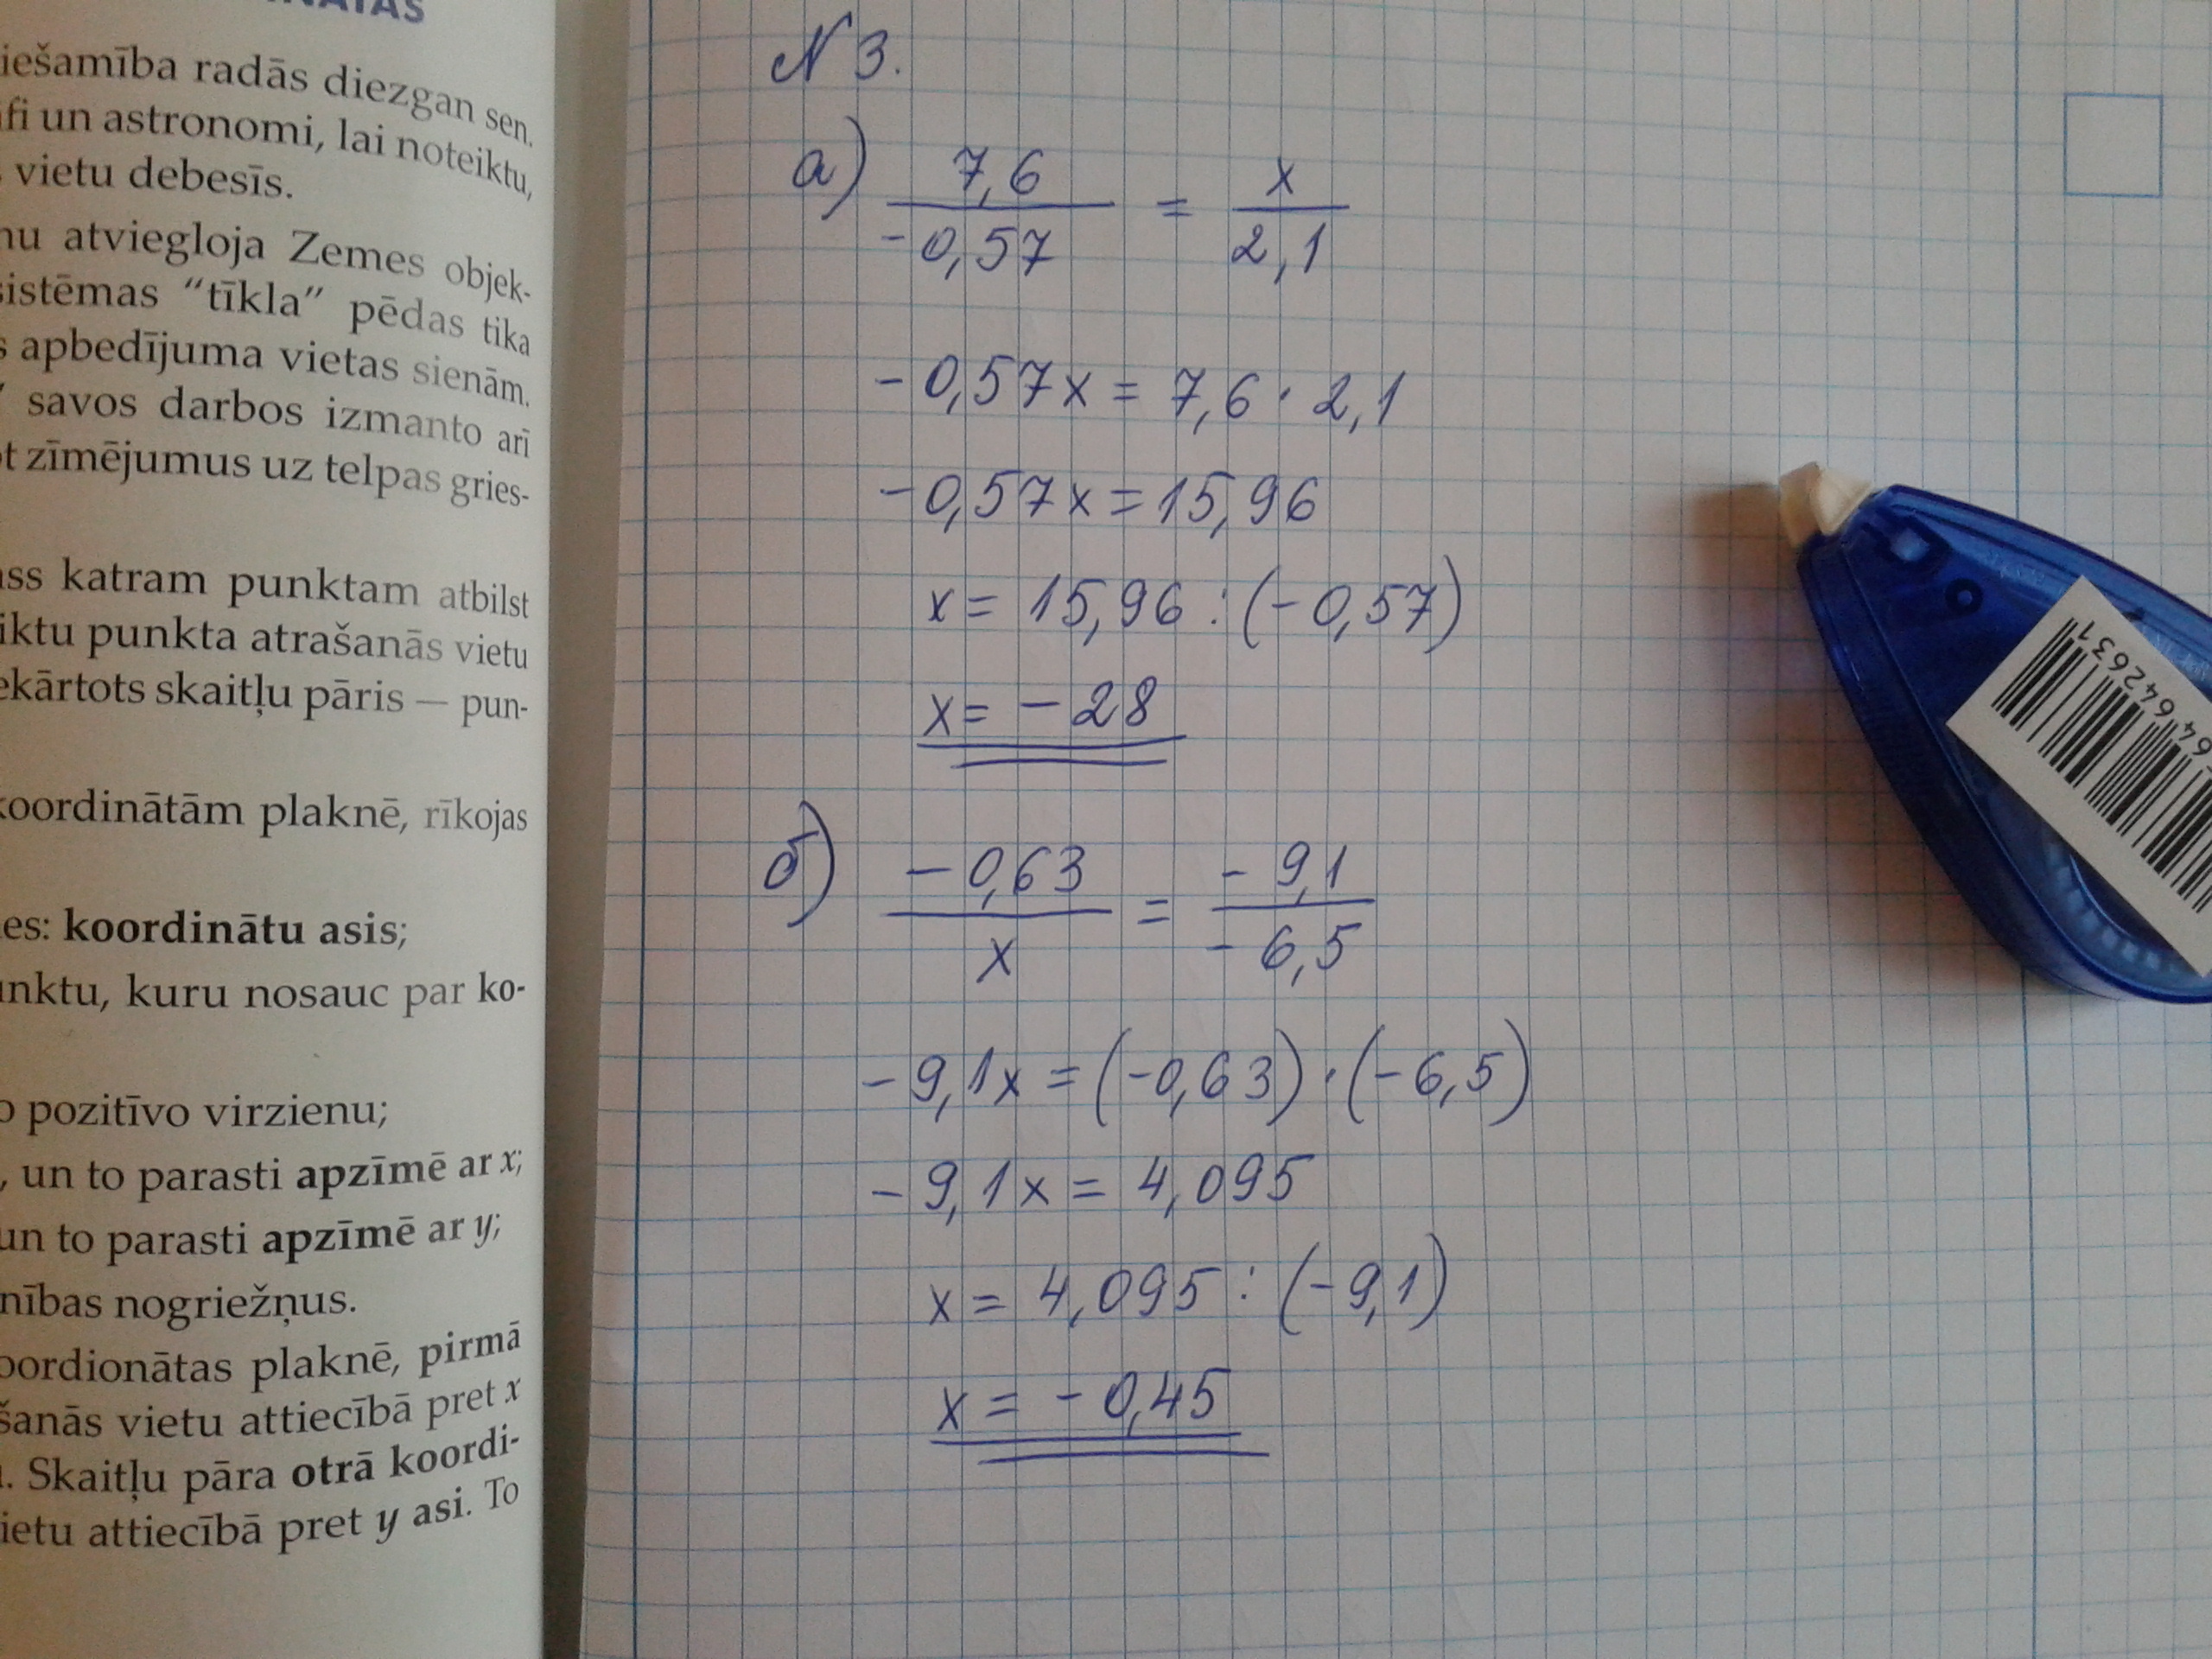 radās diezgan sen.
un astronomi, lai noteiktu,
vietu debesīs.
atviegloja Zemes objek-
“tīkla” pēdas tika
apbedījuma vietas sienām.
savos darbos izmanto arī
zīmējumus uz telpas gries-
katram punktam atbilst
punkta atrašanās vietu
skaitļu pāris — pun-
plaknē, rīkojas
koordinātu asis;
kuru nosauc par ko-
pozitīvo virzienu;
, un to parasti apzīmē ar x;
un to parasti apzīmē ar y;
nogriežņus.
plaknē, pirmā
vietu attiecībā pret x
Skaitļu pāra otrā koordi-
attiecībā pret y asi. To
N 3.
а) 7,6 / -0,57 = x / 2,1
-0,57x = 7,6 · 2,1
-0,57x = 15,96
x = 15,96 : (-0,57)
x = -28
б) -0,63 / x = -9,1 / -6,5
-9,1x = (-0,63) · (-6,5)
-9,1x = 4,095
x = 4,095 : (-9,1)
x = -0,45